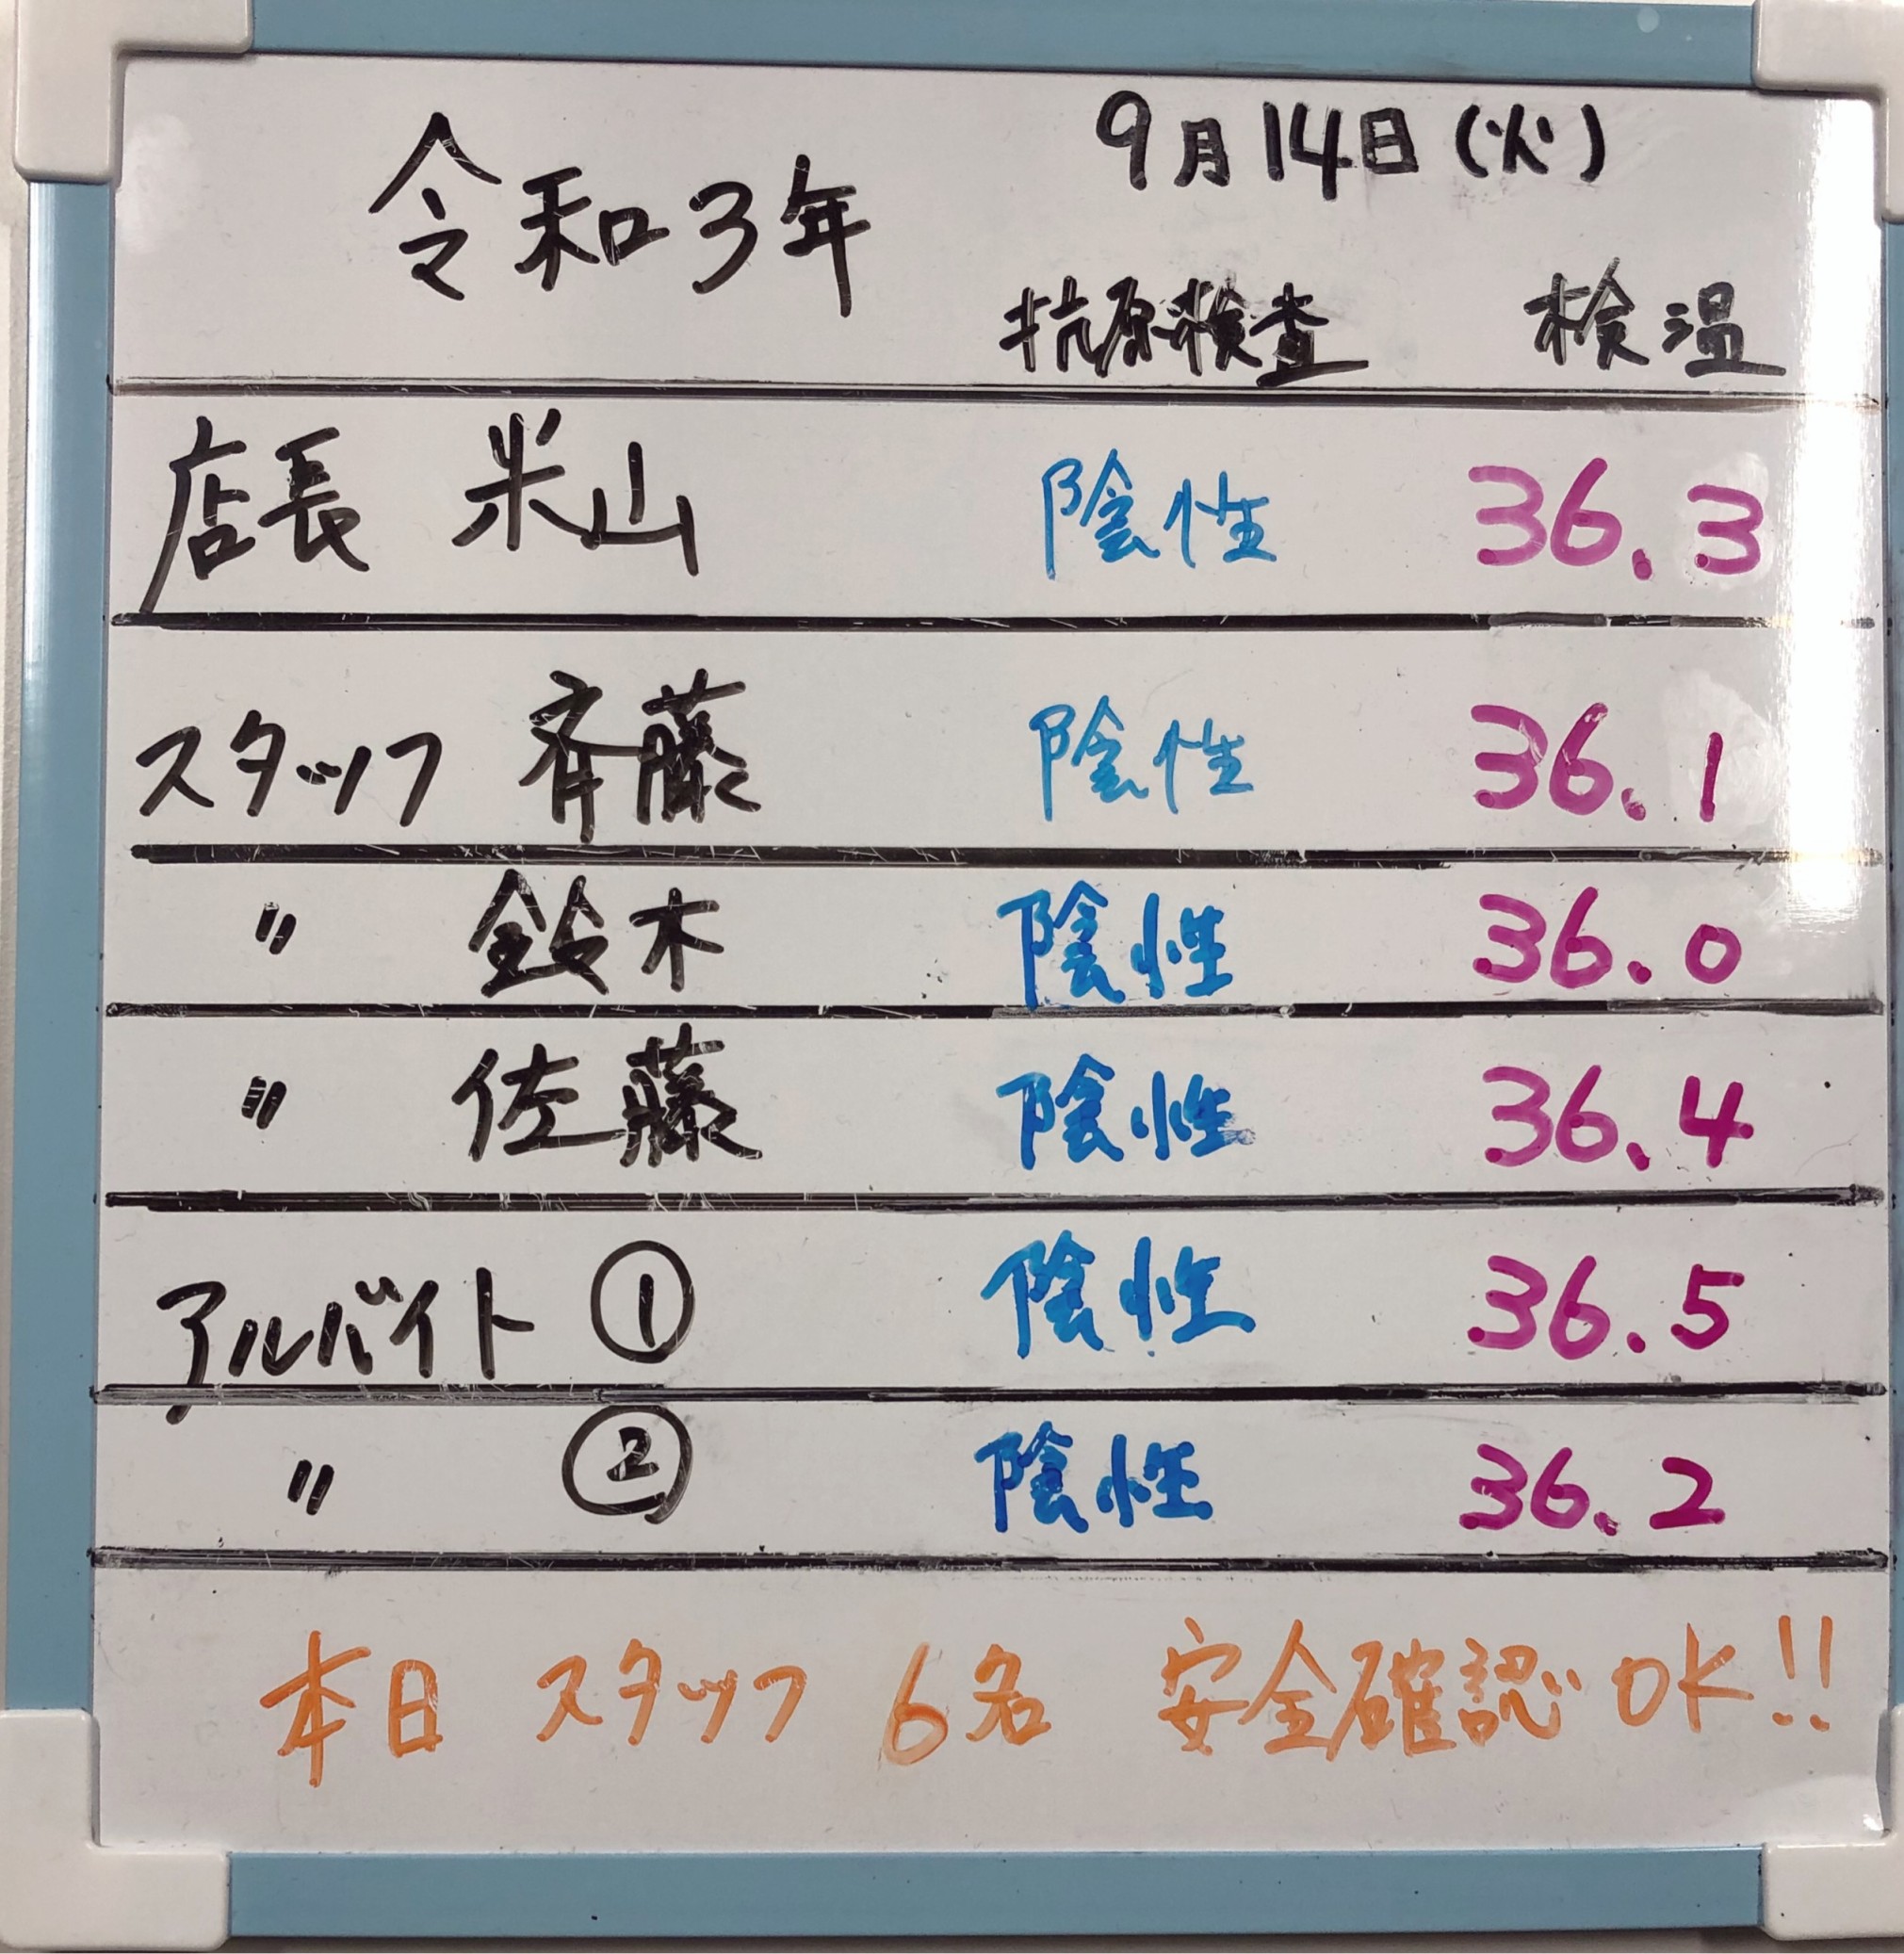 令和3年 9月14日(火)
抗原検査 検温
店長 米山 陰性 36.3
スタッフ 斉藤 陰性 36.1
〃 鈴木 陰性 36.0
〃 佐藤 陰性 36.4
アルバイト ① 陰性 36.5
〃 ② 陰性 36.2
本日 スタッフ 6名 安全確認OK!!